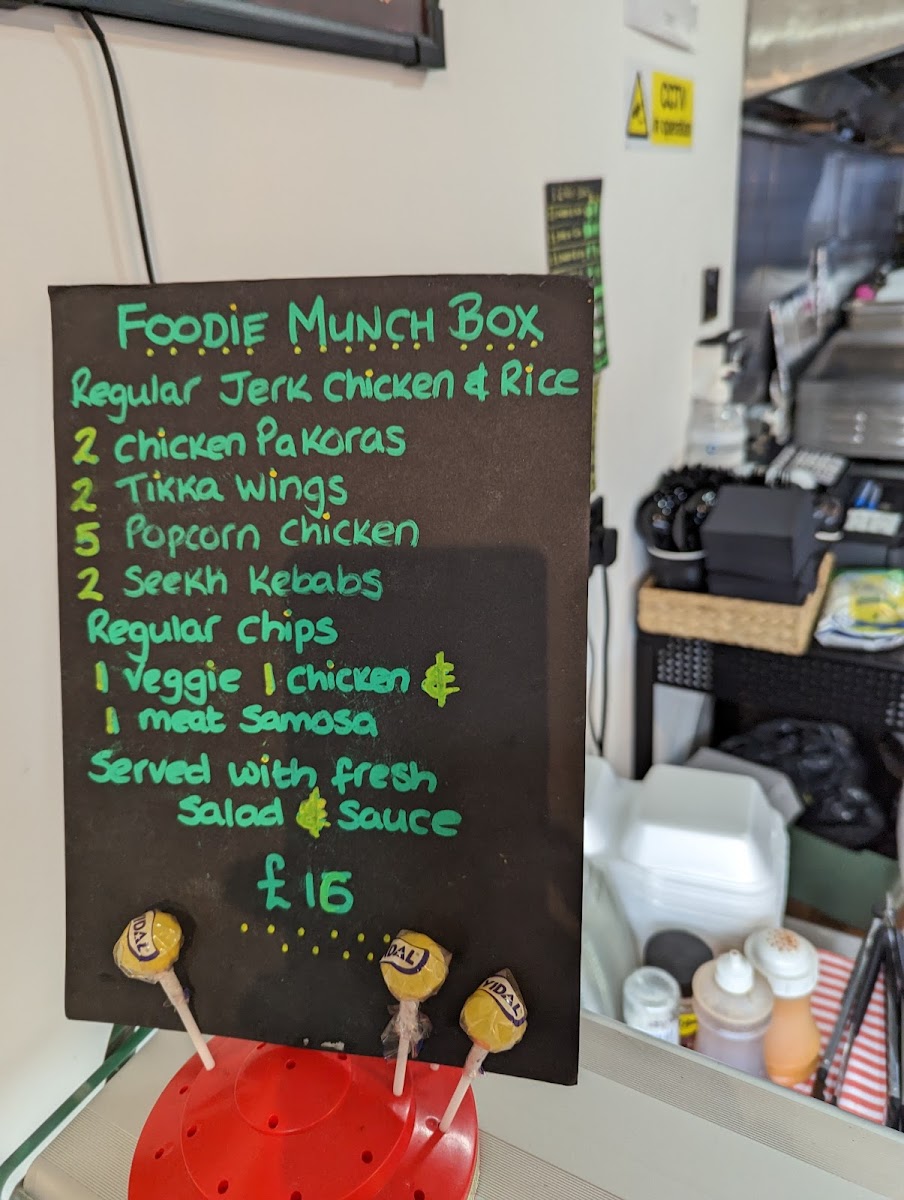 CCTV
in operation
FOODIE MUNCH BOX
Regular Jerk Chicken & Rice
2 Chicken Pakoras
2 Tikka Wings
5 Popcorn Chicken
2 Seekh Kebabs
Regular Chips
1 Veggie 1 Chicken &
1 meat Samosa
Served with fresh
Salad & Sauce
£16
VIDAL
VIDAL
VIDAL